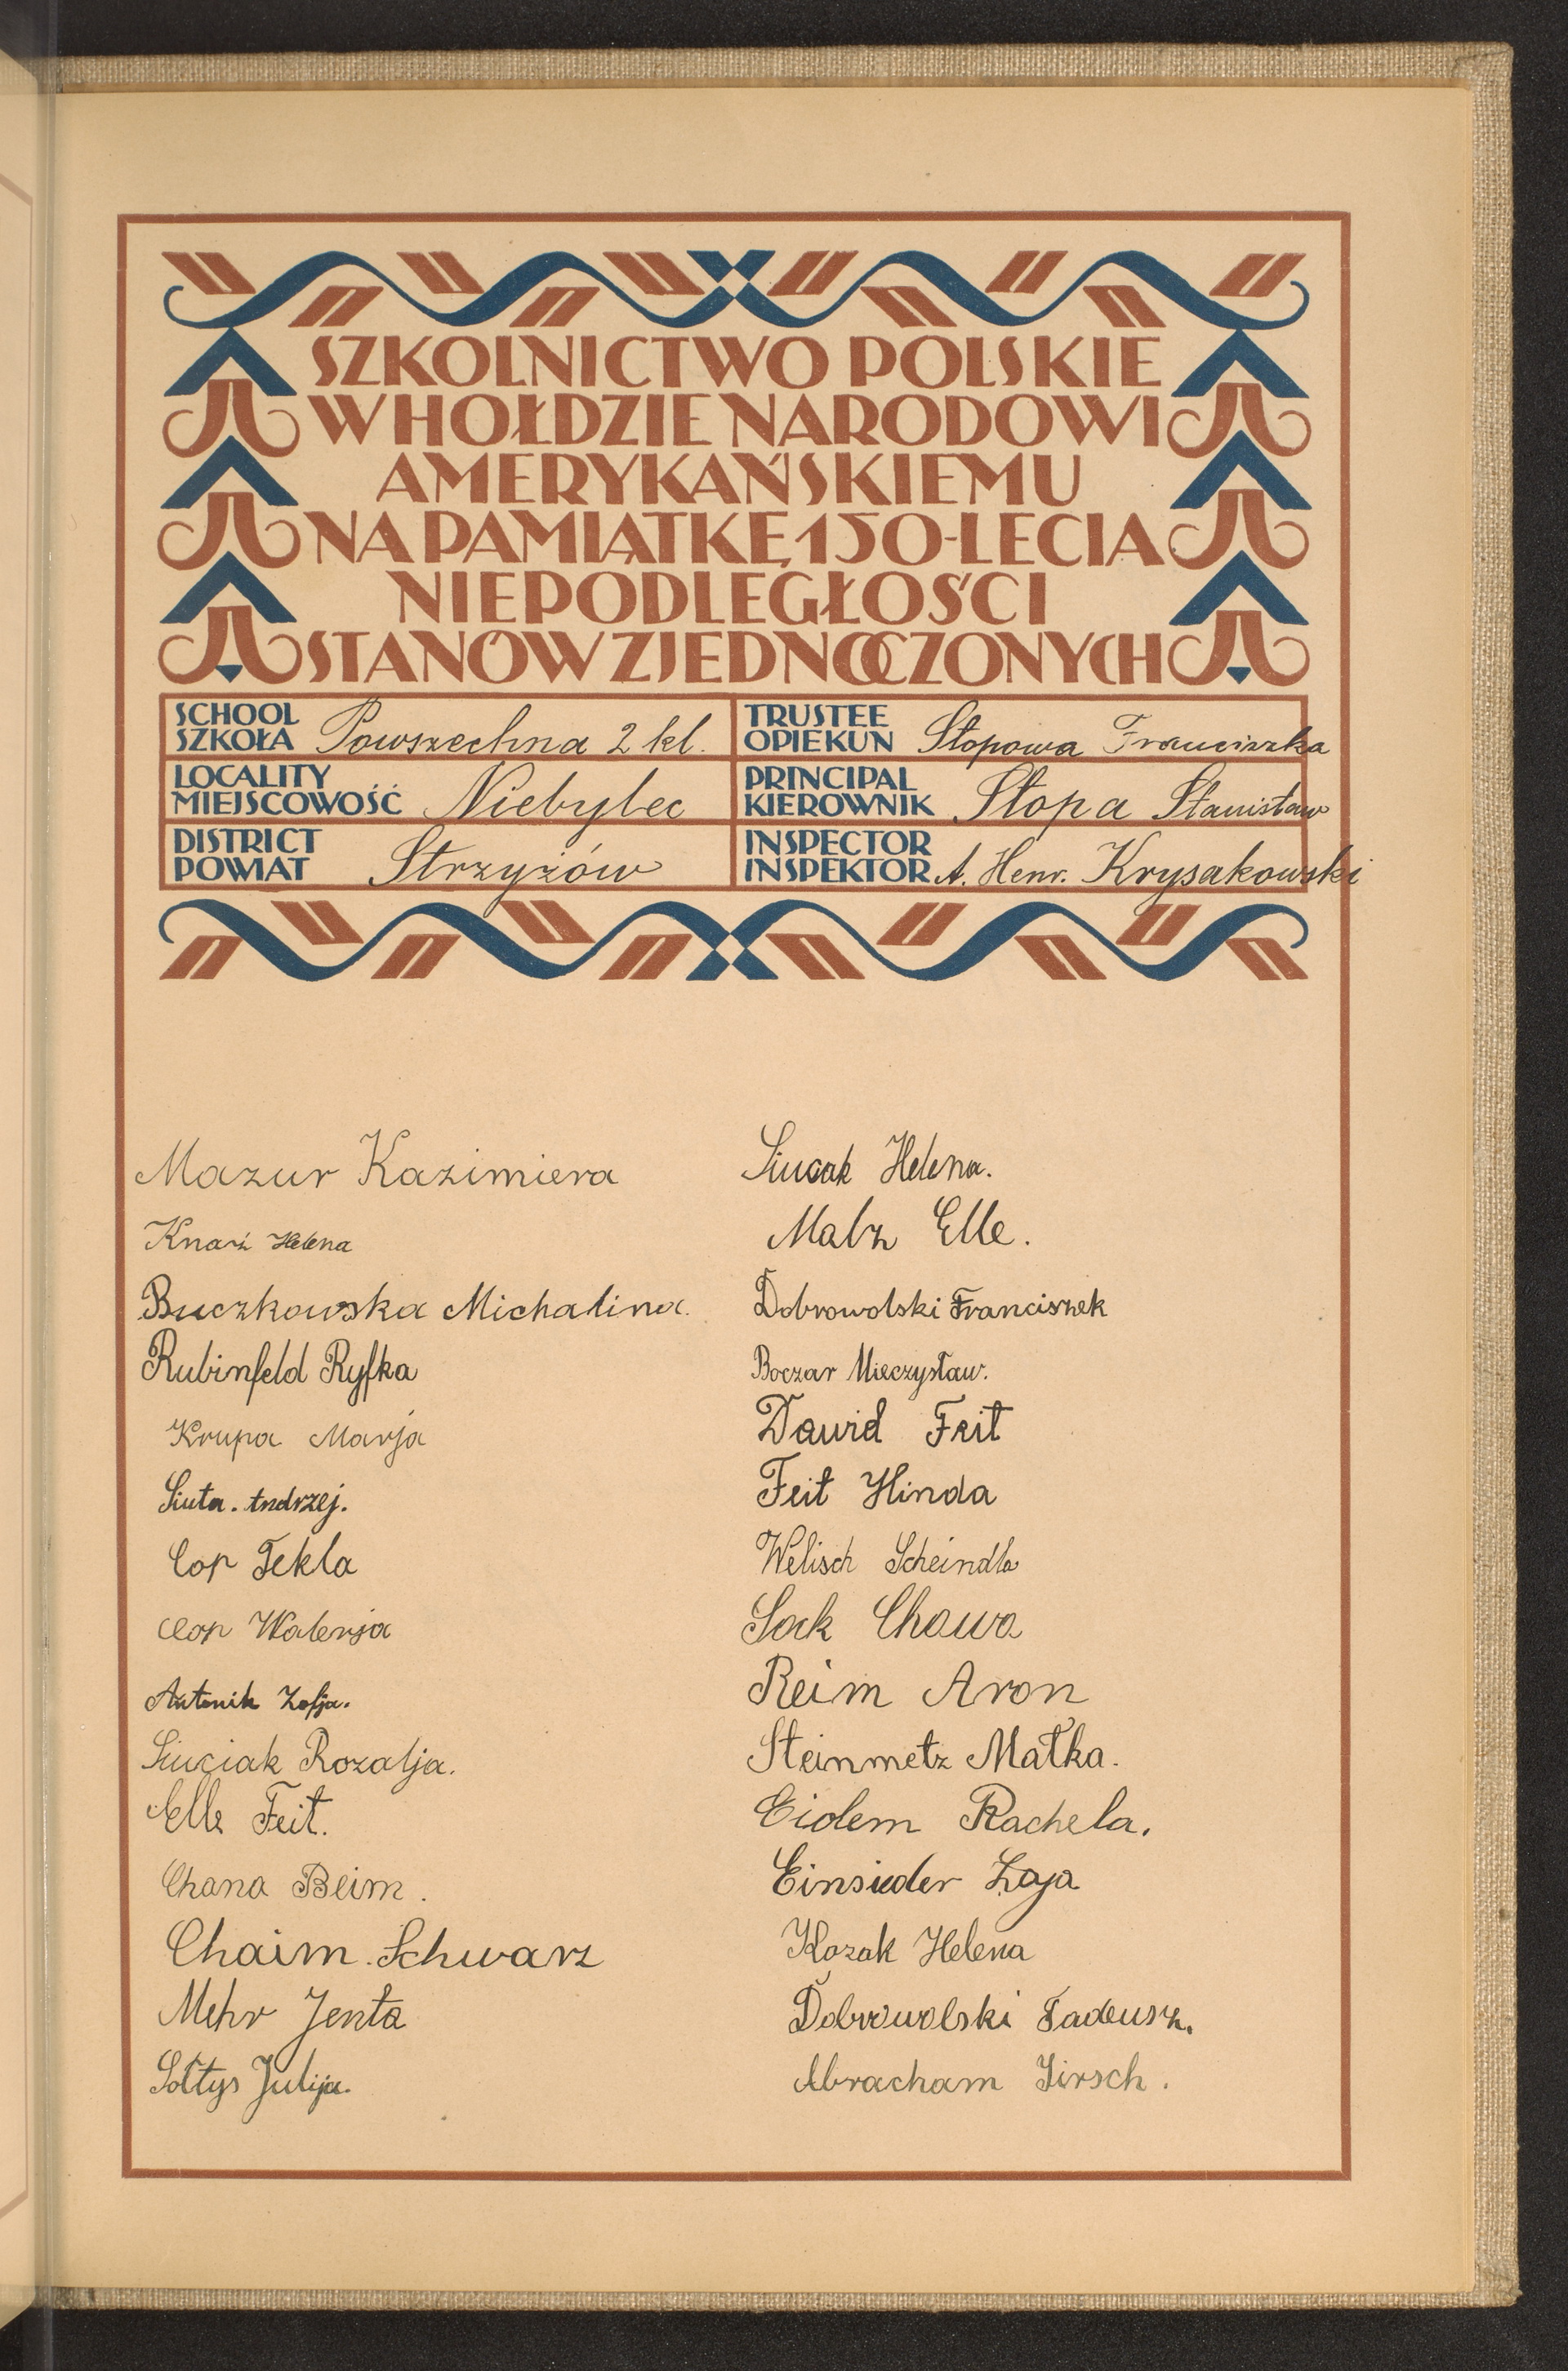 SZKOLNICTWO POLSKIE
W HOŁDZIE NARODOWI
AMERYKAŃSKIEMU
NA PAMIĄTKĘ 150-LECIA
NIEPODLEGŁOŚCI
STANÓW ZJEDNOCZONYCH
SCHOOL
SZKOŁA Powszechna 2 kl.
TRUSTEE
OPIEKUN Stopowa Franciszka
LOCALITY
MIEJSCOWOŚĆ Niebylec
PRINCIPAL
KIEROWNIK Stopa Stanisław
DISTRICT
POWIAT Strzyżów
INSPECTOR
INSPEKTOR A. Henr. Krysakowski
Mazur Kazimiera
Knaź Helena
Buczkowska Michalina.
Rubinfeld Ryfka
Krupa Marja
Siuta. Andrzej.
Cop Tekla
Cop Walerja
Antonik Zofja.
Siuciak Rozalja.
Elle Feit.
Chana Beim.
Chaim Schwarz
Mehr Jenta
Sołtys Julija.
Siucak Helena.
Malz Elle.
Dobrowolski Franciszek
Boczar Mieczysław.
Dawid Feit
Feit Hinda
Welisch Scheindla
Sack Chawa
Reim Aron
Steinmetz Matka.
Eidem Rachela.
Einsieder Łaja
Kozak Helena
Dobrowolski Tadeusz.
Abracham Hirsch.